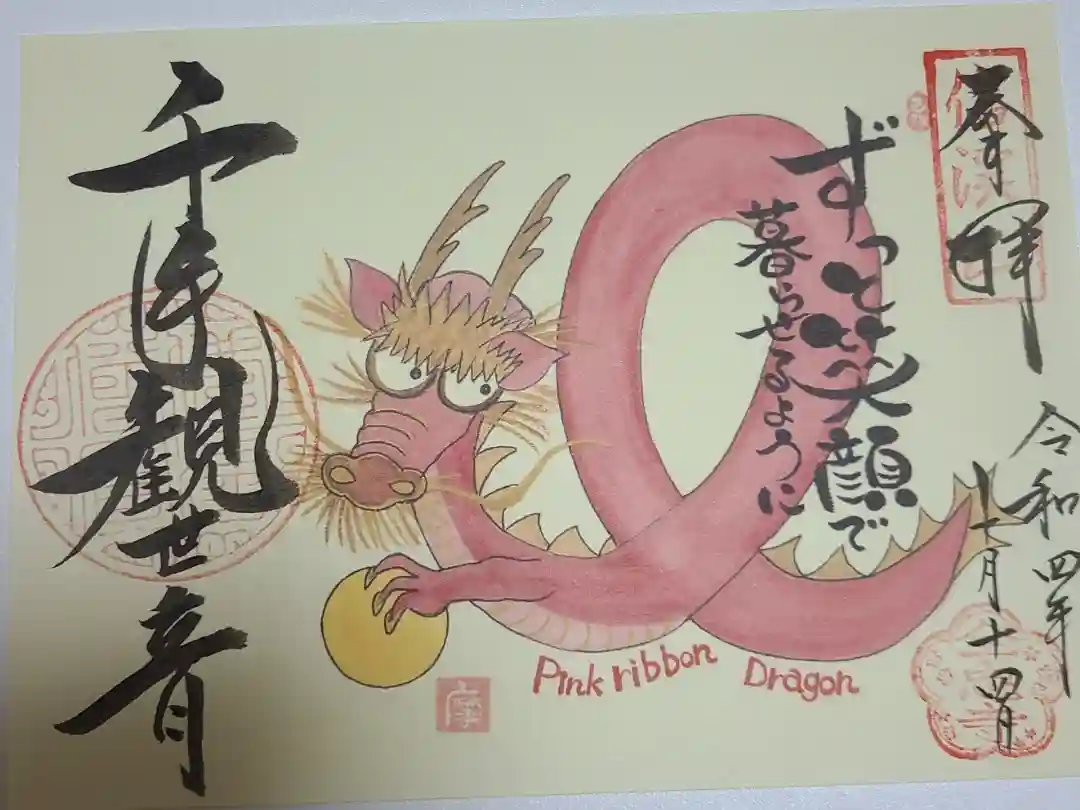 奉拝
令和四年
月十四日
ずっと笑顔で
暮らせるように
千手観世音
Pink ribbon Dragon
摩